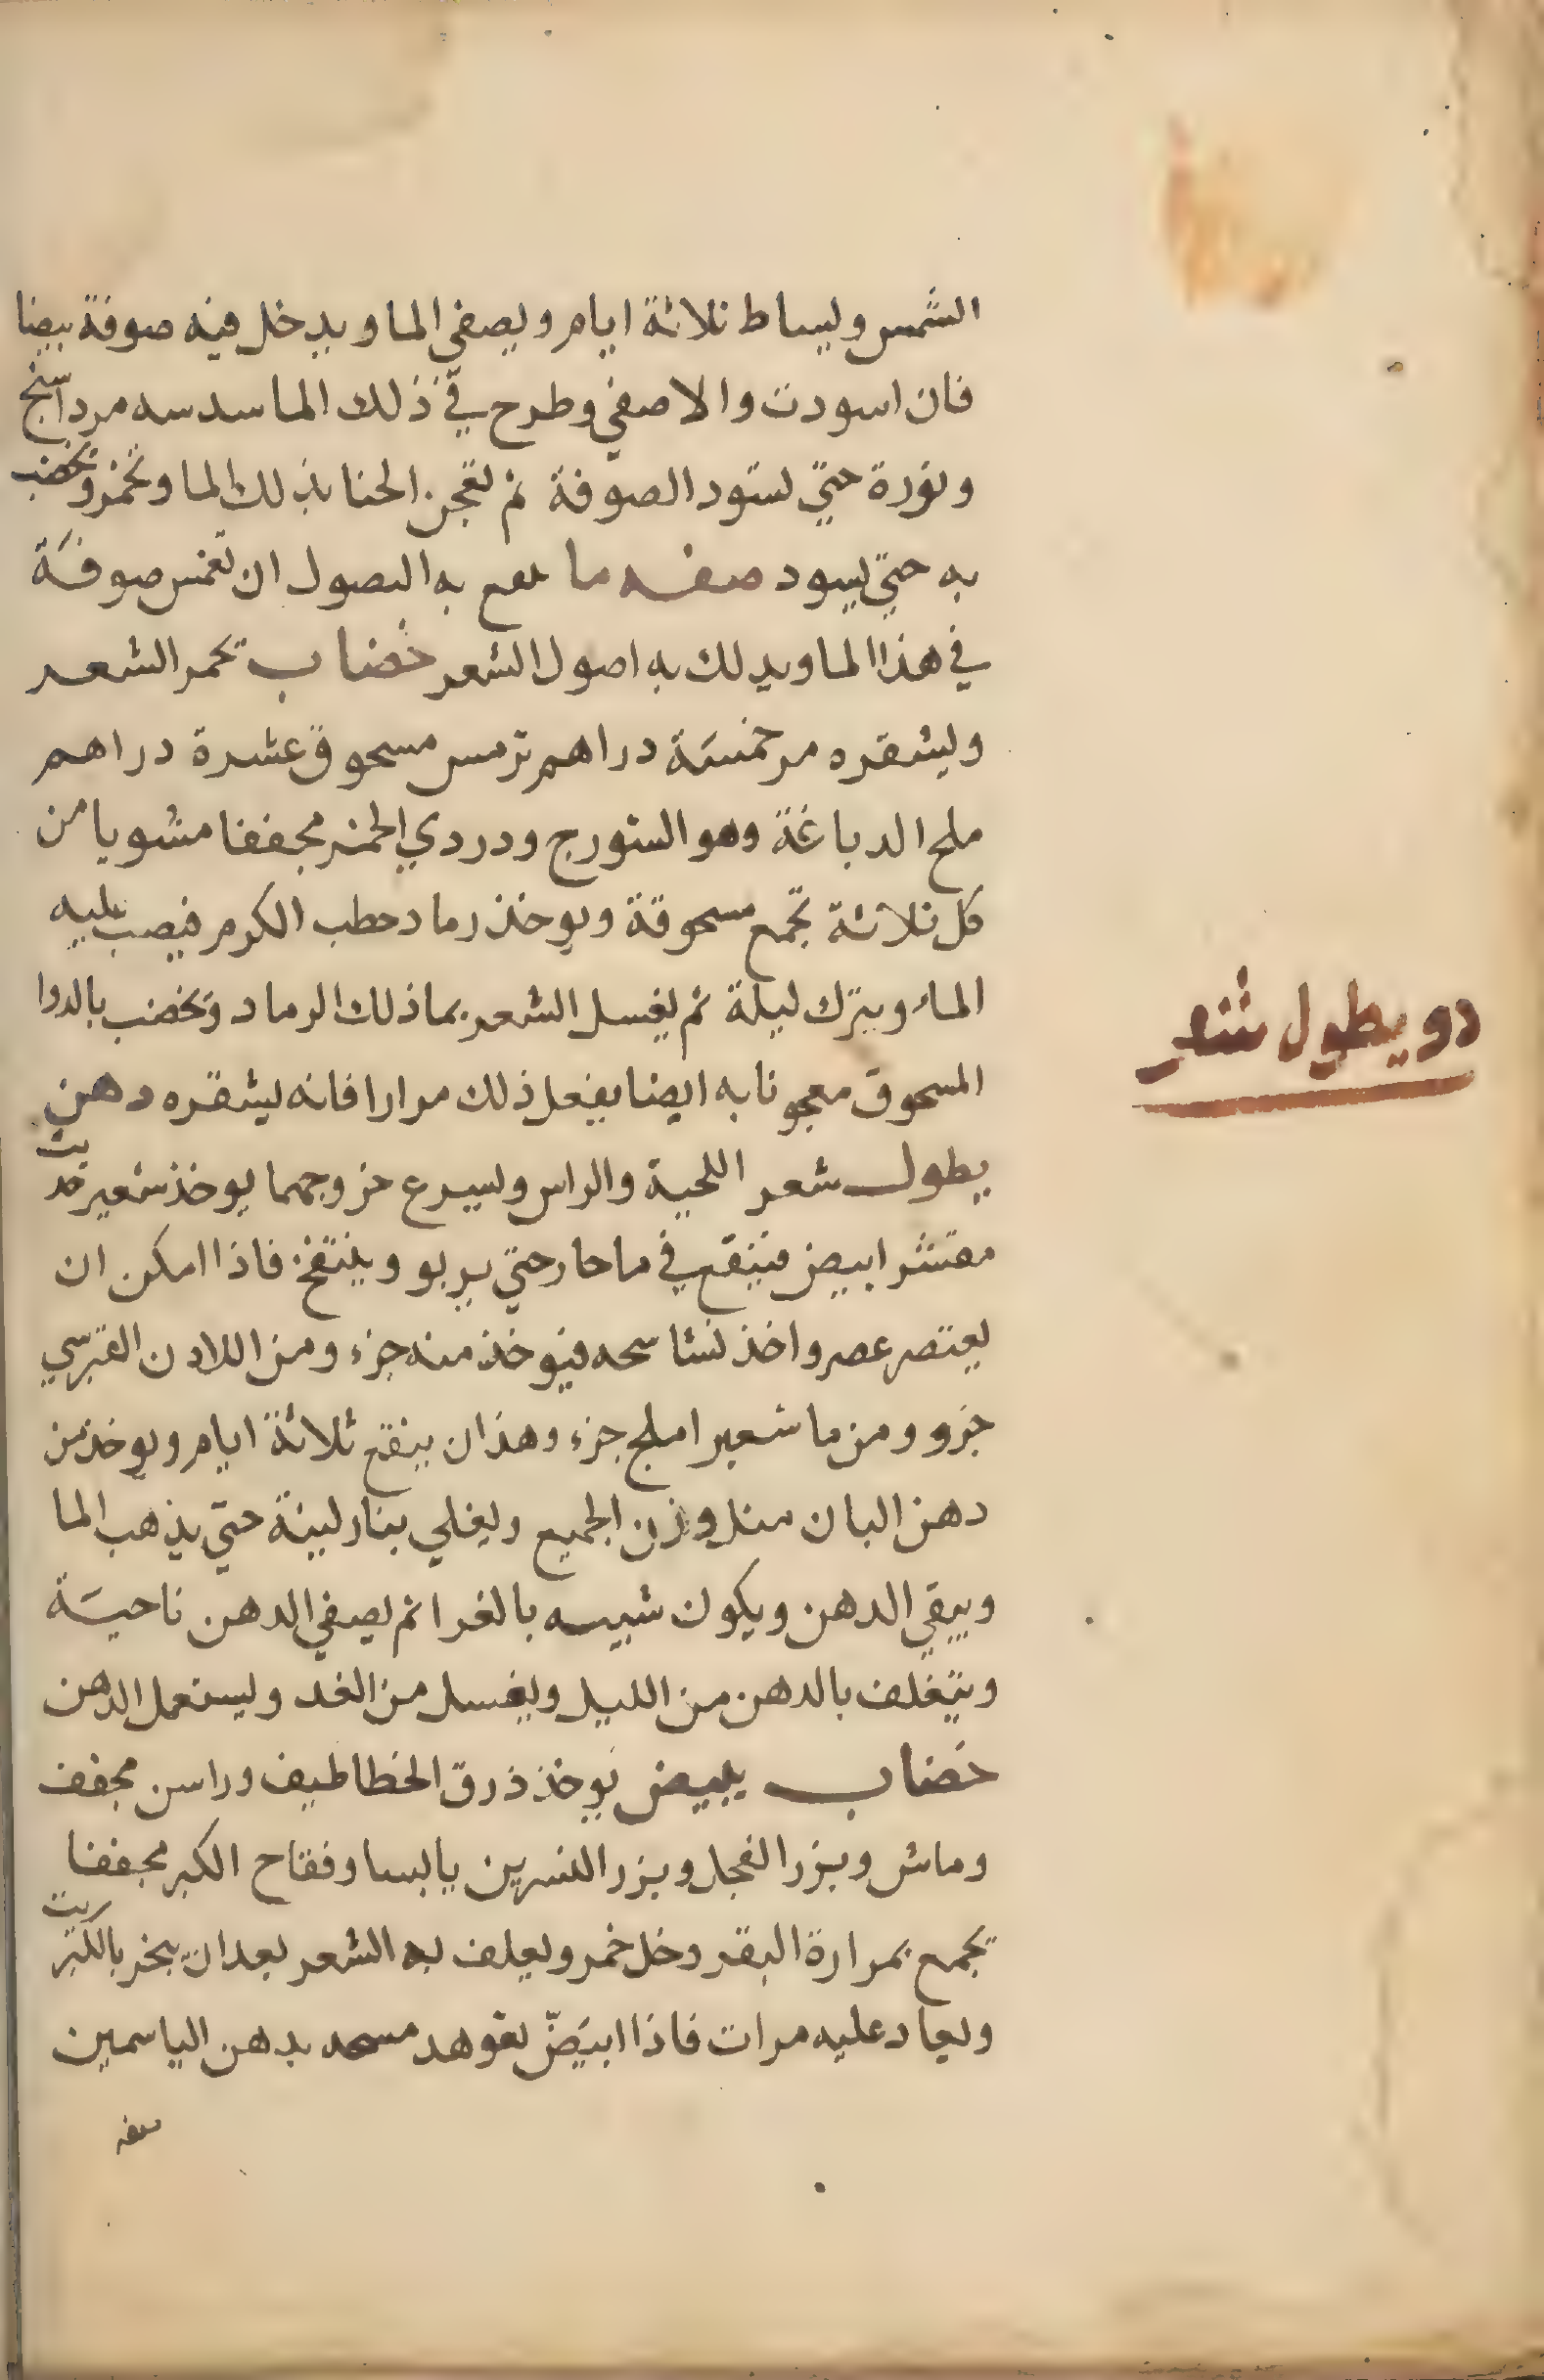 الشمس ويساط ثلاثة ايام ويصفي الما ويدخل فيه صوفة بيضا
فان اسودت والا صفي وطرح في ذلك الما سدسه مرداسنج
ونورة حتي تسود الصوفة ثم تعجن الحنا بذلك الما وتخمر وتخضب
به حتي يسود صفه ما به النصول ان تغمس صوفة
في هذا الما ويدلك به اصول الشعر خضاب يحمر الشعر
ويشقره مر خمسة دراهم ترمس مسحوق عشرة دراهم
ملح الدباغة وهو الشورج ودردي الخمر مجففا مشويا من
كل ثلاثة تجمع مسحوقة ويوخذ رماد حطب الكرم فيصب عليه
الماء ويترك ليلة ثم يغسل الشعر بما ذلك الرماد وتخضب بالدوا
المسحوق معجونا به ايضا يفعل ذلك مرارا فانه يشقره دهن
يطول شعر اللحية والراس ويسرع خروجهما يوخذ شعير حديث
مقشر ابيض فينقع في ما حار حتي يربو وينتفخ فاذا امكن ان
يعتصر عصر واخذ نشا سحه فيوخذ منه جزء ومن اللادن القبرسي
جزو ومن ما شعير املج جزء وهذان ينقع ثلاثة ايام ويوخذ من
دهن البان مثل وزن الجميع ويغلي بنار لينة حتي يذهب الما
ويبقي الدهن ويكون شبيه بالغرا ثم يصفي الدهن ناحية
ويتغلف بالدهن من الليل ويغسل من الغد ويستعمل الدهن
خضاب يبيض يوخذ ذرق الخطاطيف وراسن مجفف
وماش وبزر الفجل وبزر النسرين يابسا وفقاح الكبر مجففا
تجمع بمرارة البقر وخل خمر ويغلف به الشعر بعد ان يبخر بالكبريت
ويعاد عليه مرات فاذا ابيض تعوهد مسحه بدهن الياسمين
دو يطول شعر